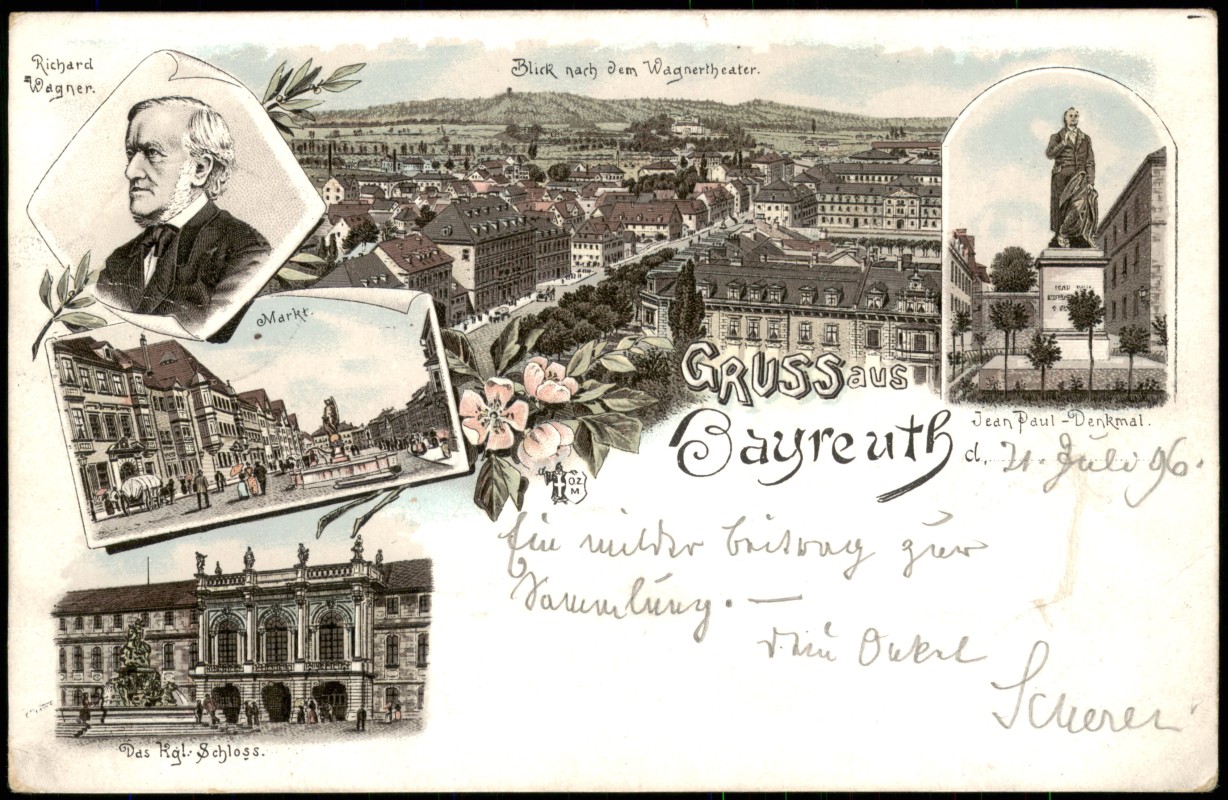 Richard
Wagner.
Blick nach dem Wagnertheater.
Markt.
GRUSS aus
Bayreuth
Jean Paul-Denkmal.
d. 21. Juli 96.
O.Z.
M
Ein milder Beitrag zur
Sammlung. —
Dein Onkel
Scherer
Das Kgl. Schloss.